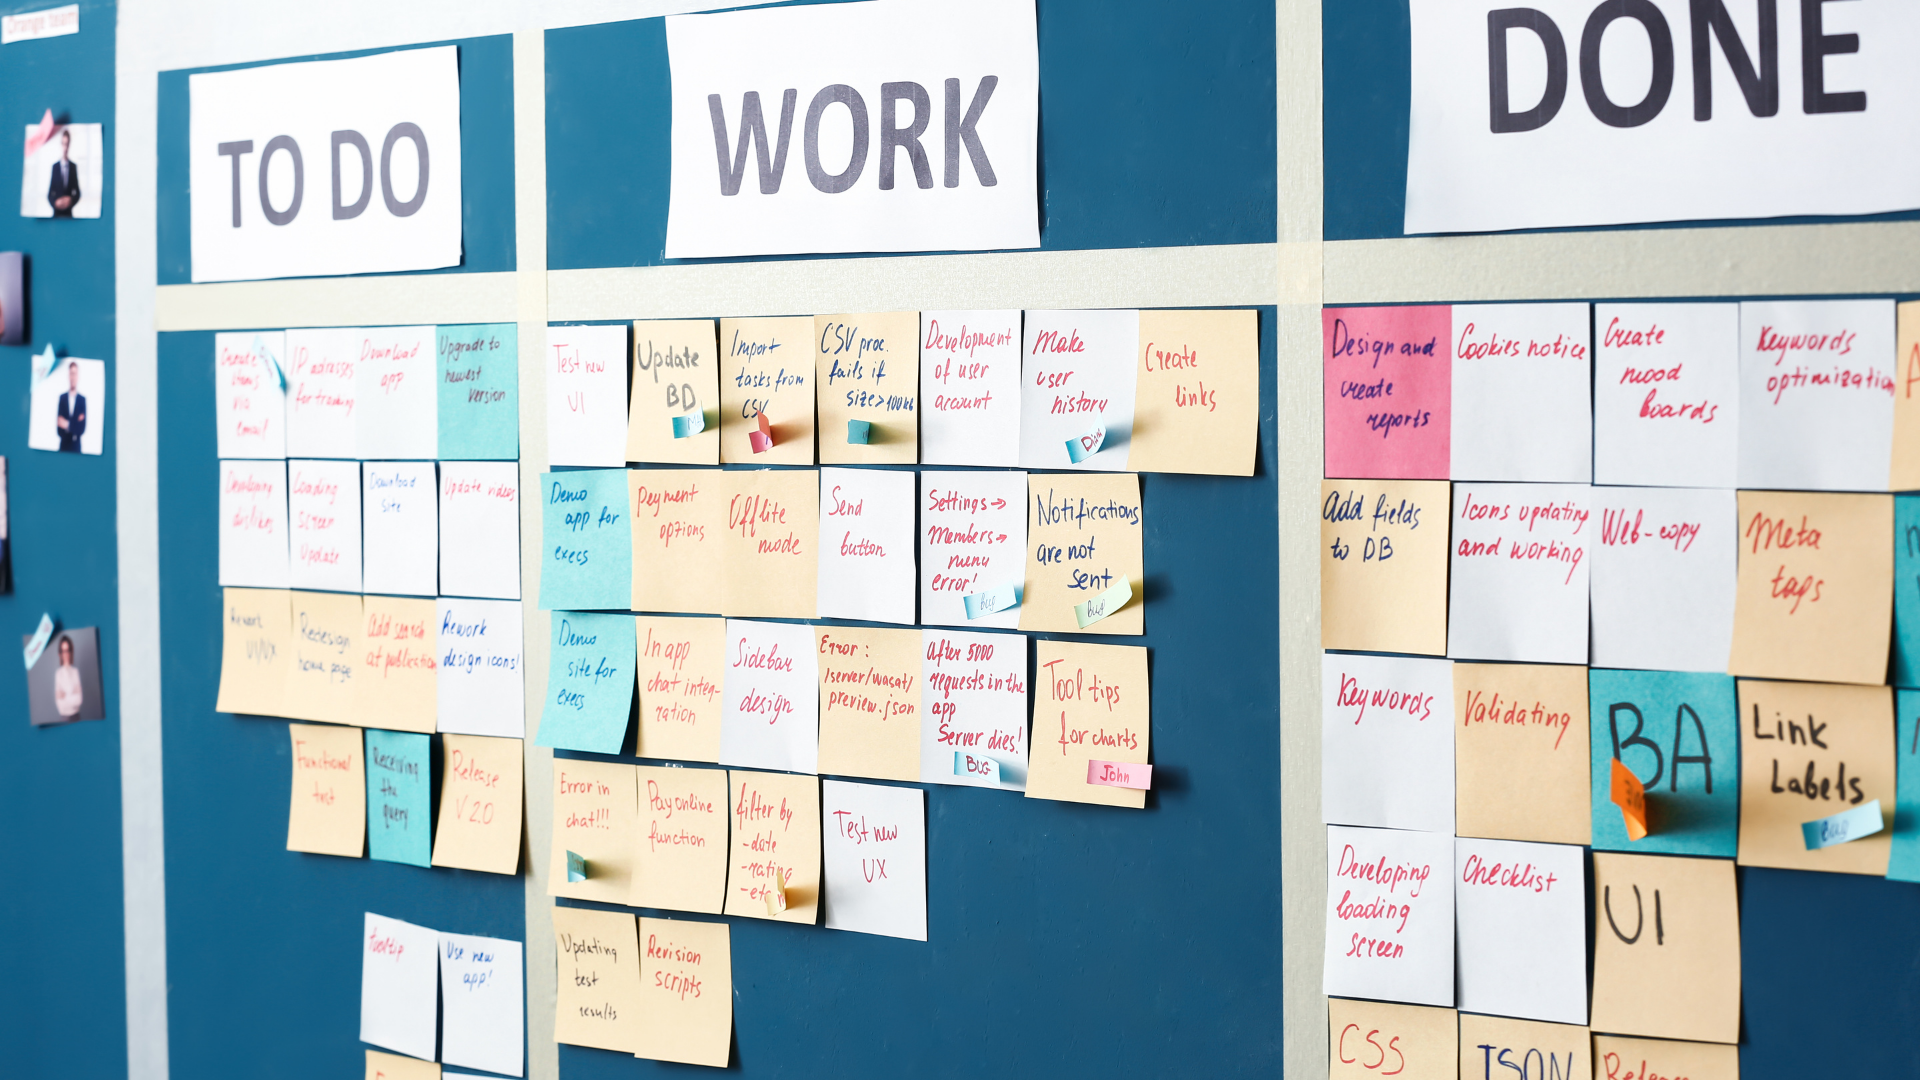 Orange team
TO DO
WORK
DONE
via
email
IP adresses
for tracking
Download
app
Upgrade to
newest
version
Developing
dislikes
Loading
screen
update
Download
site
Update videos
UI/UX
Redesign
home page
Add search
at publication
Rework
design icons!
Functional
test
Receiving
the
query
Release
V 2.0
tooltip
Use new
app!
Test new
UI
Update
BD
Import
tasks from
CSV
CSV proc.
fails if
size>100kb
Development
of user
account
Make
user
history
Create
links
Demo
app for
execs
peyment
options
Offlite
mode
Send
button
Settings→
Members→
menu
error!
Bug
Notifications
are not
sent
Bug
Demo
site for
execs
In app
chat integ-
ration
Sidebar
design
Error:
/server/wacat/
preview.json
After 5000
requests in the
app
Server dies!
BUG
Tool tips
for charts
John
Error in
chat!!!
Pay online
function
filter by
-date
-rating
-etc
Test new
UX
Updating
test
results
Revision
scripts
Design and
create
reports
Cookies notice
Create
mood
boards
Keywords
optimization
Add fields
to DB
Icons updating
and working
Web-copy
Meta
tags
Keywords
Validating
BA
Link
Labels
Bug
Developing
loading
screen
Checklist
UI
CSS
JSON
Release